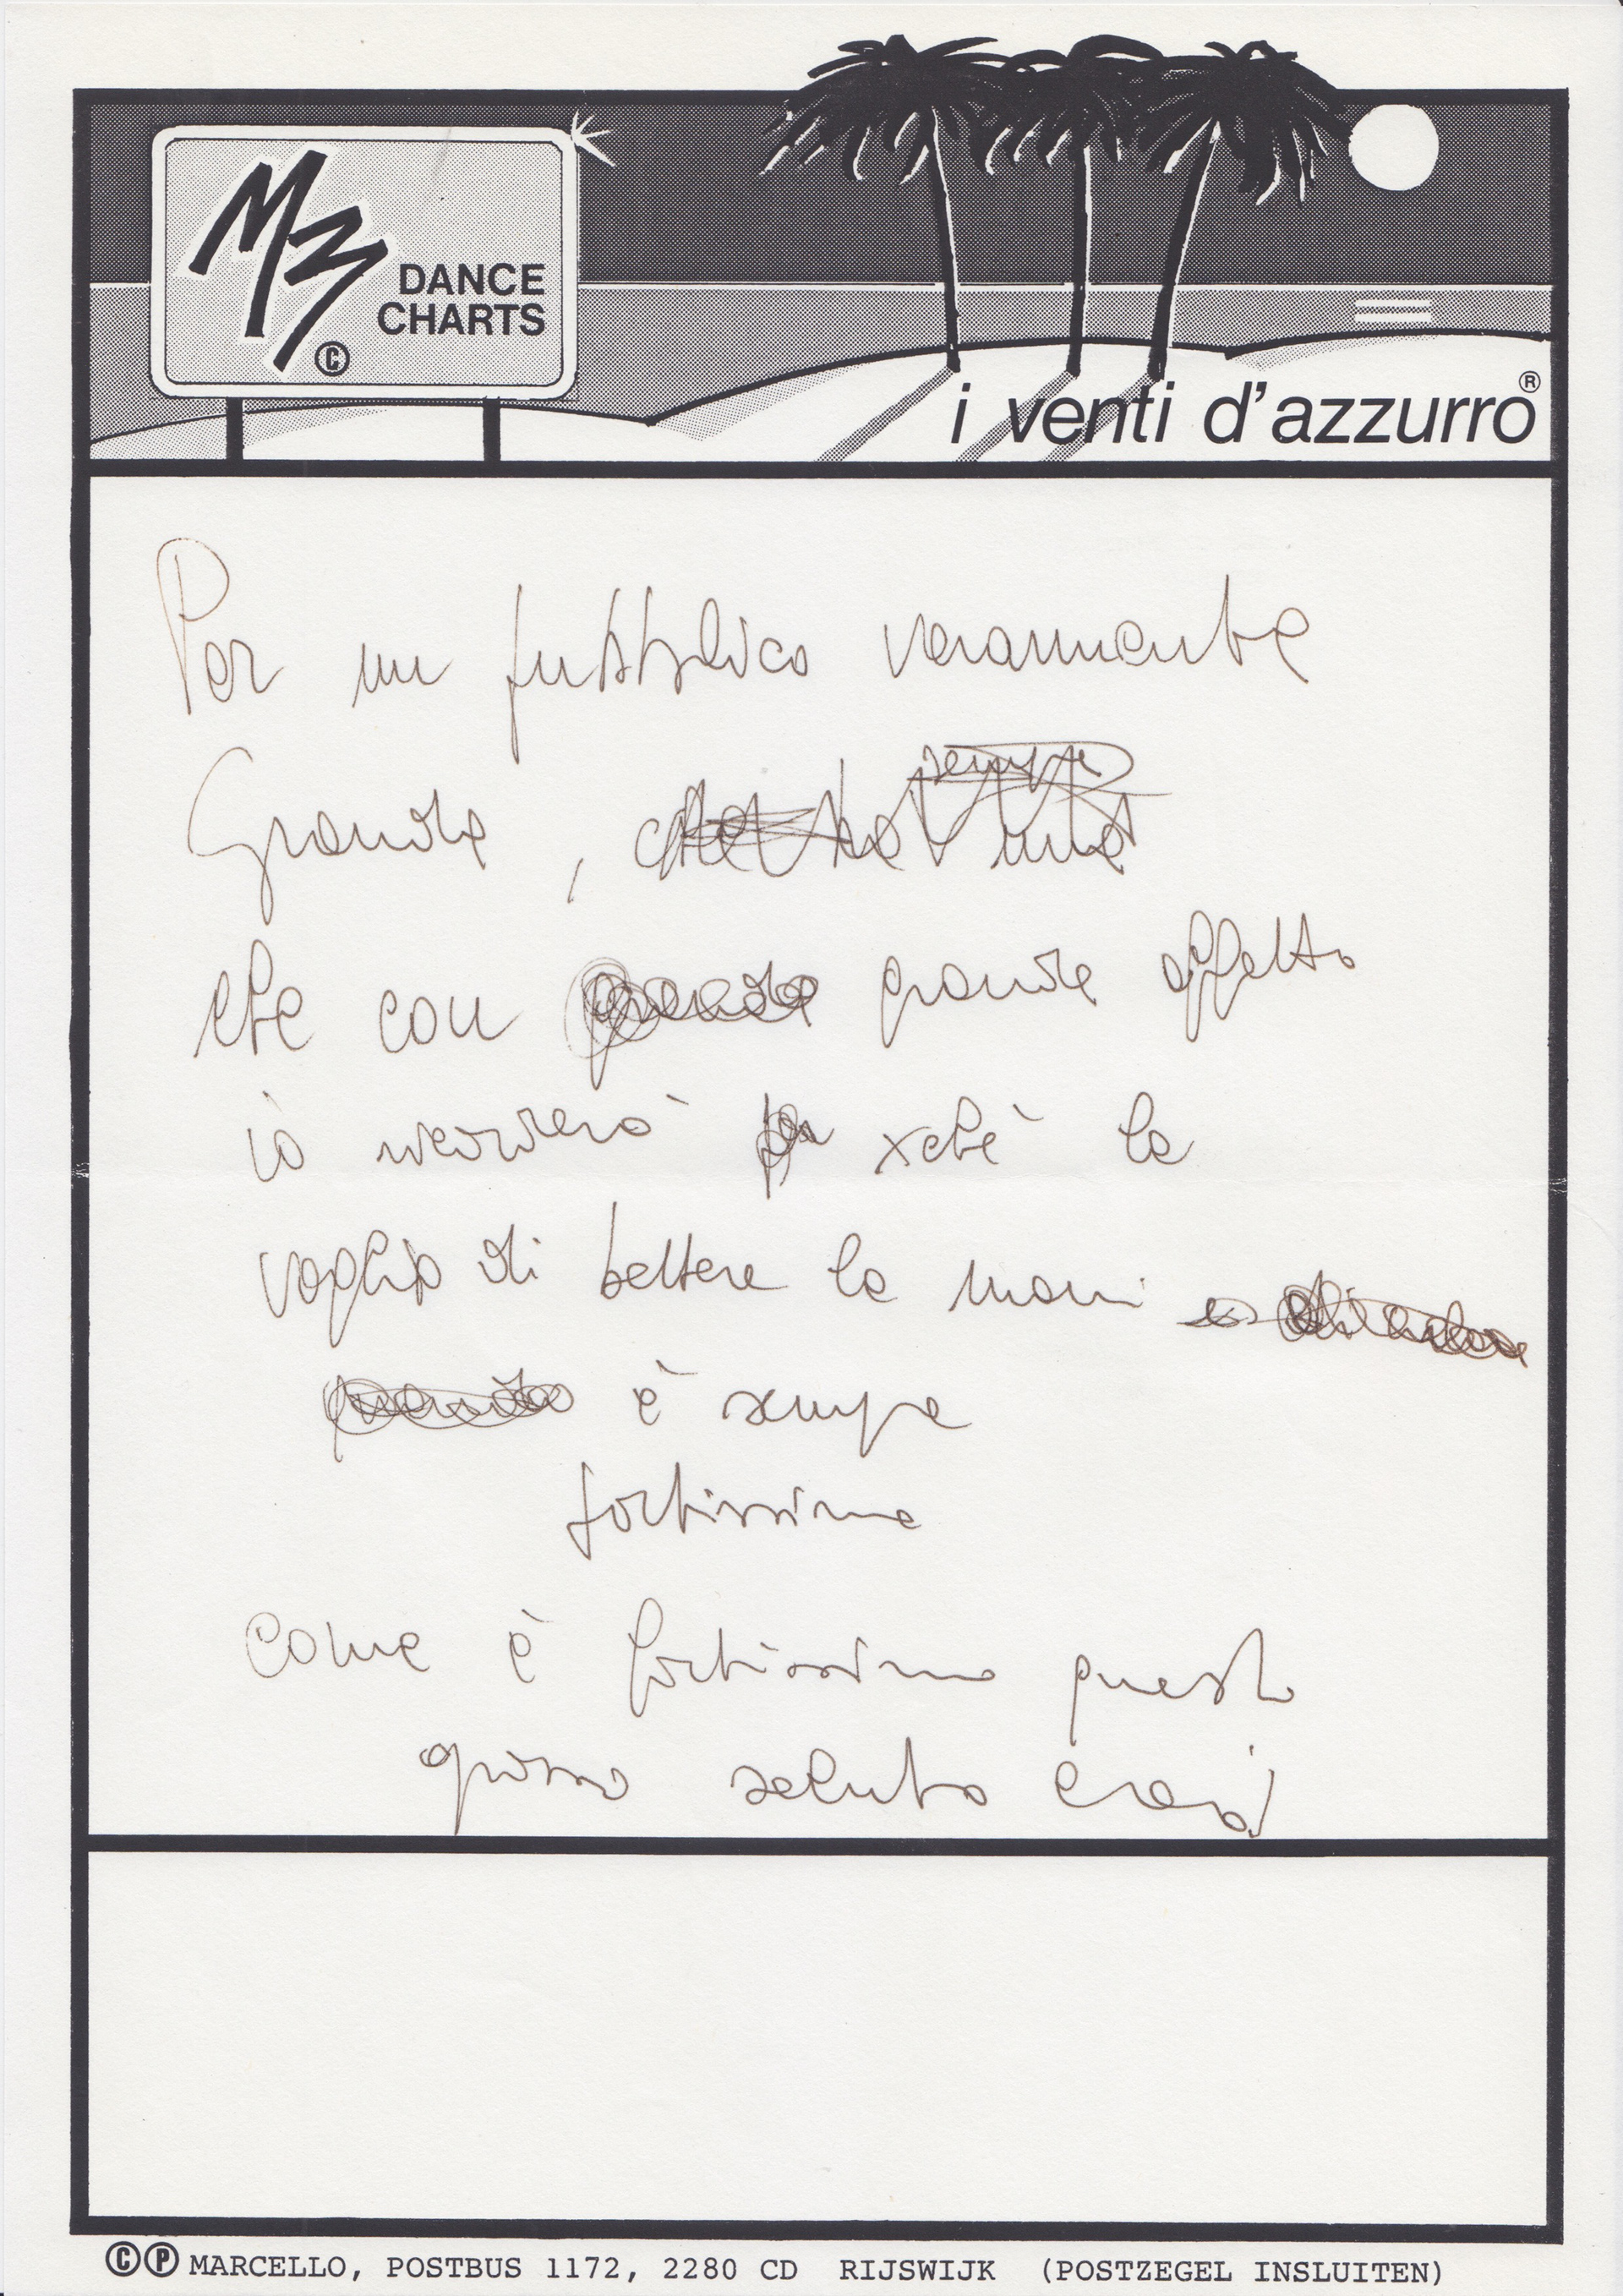 MZ
DANCE
CHARTS
©
i venti d'azzurro®
Per un pubblico veramente
Grande, che ha sempre
che con grande grande affetto
io rivedrò per xchè la
voglia di battere le mani e
è sempre
fortissima
come è fortissimo questo
grosso saluto
©Ⓟ MARCELLO, POSTBUS 1172, 2280 CD RIJSWIJK (POSTZEGEL INSLUITEN)